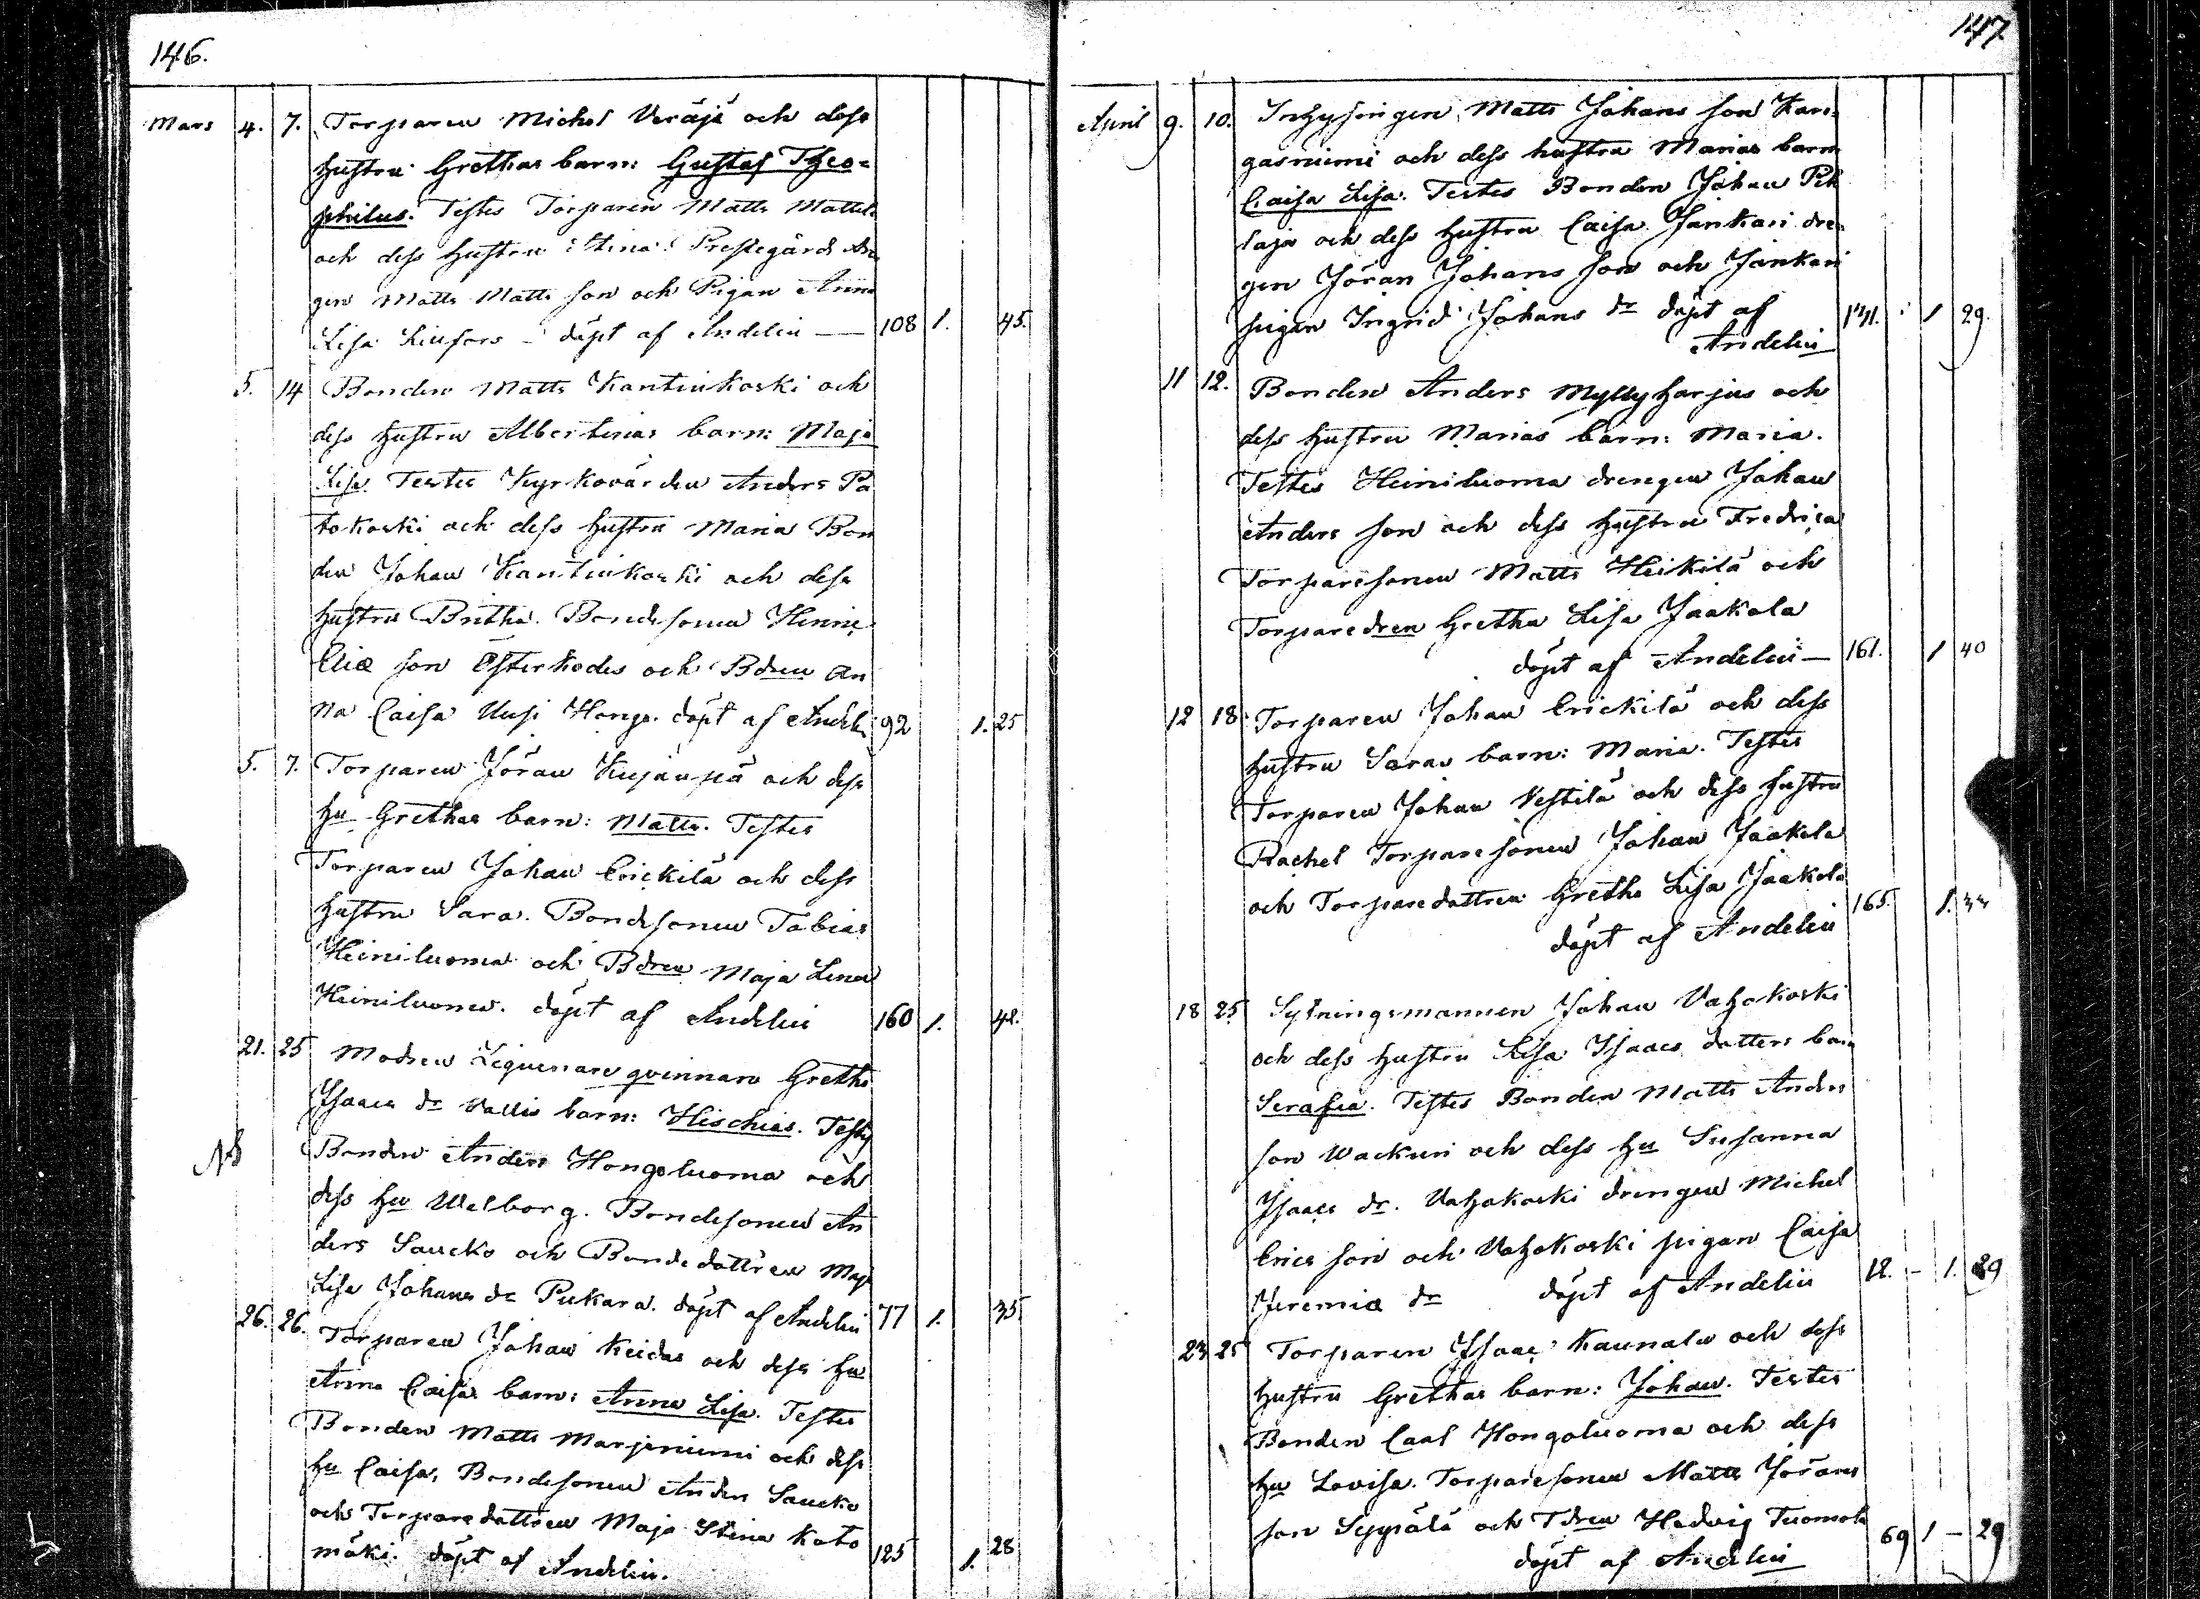 146.
Mars 4. 7. Torparen Michel Väräjä och dess
hustru Grethas barn: Gustaf Theo=
philus. Testes Torparen Matts Mattel
och dess hustru Stina. Prestegårds drän
gen Matts Matts son och Pigan Anna
Lisa Linfors – döpt af Andelin — 108 1. 45.
5. 14 Bonden Matts Kantinkoski och
dess hustru Albertinas barn: Maja
Lisa. Testes Kyrkovärden Anders Pa
tokoski och dess hustru Maria Bon
den Johan Kantinkoski och dess
hustru Britha. Bondesonen Henric
Eliæ son Österkodes och Bdren An
na Caisa Uusi Hongo. döpt af Andeli 92 1. 25
5. 7. Torparen Jöran Kujanpä och dess
hu Grethas barn: Matts. Testes
Torparen Johan Erickilä och dess
hustru Sara. Bondesonen Tobias
Heiniluoma och Bdren Maja Lena
Heiniluoma. döpt af Andelin 160 1. 42.
21. 25 Modren Legwenare qvinnan Gretha
Isaacs dr Vallis barn: Hischias. Testes
NB Bonden Anders Hongoluoma och
dess hu Walborg. Bondesonen An
ders Saucko och Bondedottren Maja
Lisa Johans dr Puckara. döpt af Andelin 77 1. 35.
26. 26. Torparen Johan Keidas och dess hu
Anna Caisas barn: Anna Lisa. Testes
Bonden Matts Marjeniemi och dess
hu Caisa, Bondesonen Anders Saucko
och Torparedottren Maja Stina Kato
mäki. döpt af Andelin. 125 1. 28
147
April 9. 10. Inhysingen Matts Johans son Kan=
gasniemi och dess hustru Marias barn
Caisa Lisa. Testes Bonden Johan Peh
laja och dess hustru Caisa Jankari drän
gen Jöran Johans son och Jankari
pigan Ingrid Johans dr döpt af 141. 1 29.
Andelin
11 12. Bonden Anders Myllyharjus och
dess hustru Marias barn: Maria.
Testes Heiniluoma drengen Johan
Anders son och dess hustru Fredrica
Torparesonen Matts Heikilä och
Torparedren Gretha Lisa Jaakola
döpt af Andelin — 161. 1 40
12 18 Torparen Johan Erickilä och dess
hustru Saras barn: Maria. Testes
Torparen Johan Vestilä och dess hustru
Rachel Torparesonen Johan Jaakola
och Torparedottren Gretha Lisa Jaakola 165. 1. 33
döpt af Andelin
18 25 Sytningsmannen Johan Vahokoski
och dess hustru Lisa Isaacs dotters barn
Serafia. Testes Bonden Matts Anders
son Wackuri och dess hu Susanna
Isaacs dr. Vahokoski drengen Michel
Erics son och Vahokoski pigan Caisa
Jeremiæ dr döpt af Andelin 12. – 1. 29
23 25 Torparen Isaac Kaunala och dess
hustru Grethas barn: Johan. Testes
Bonden Carl Hongoluoma och dess
hu Lovisa. Torparesonen Matts Jörans
son Seppälä och Tdren Hedvig Tuomola 69 1 – 29
döpt af Andelin